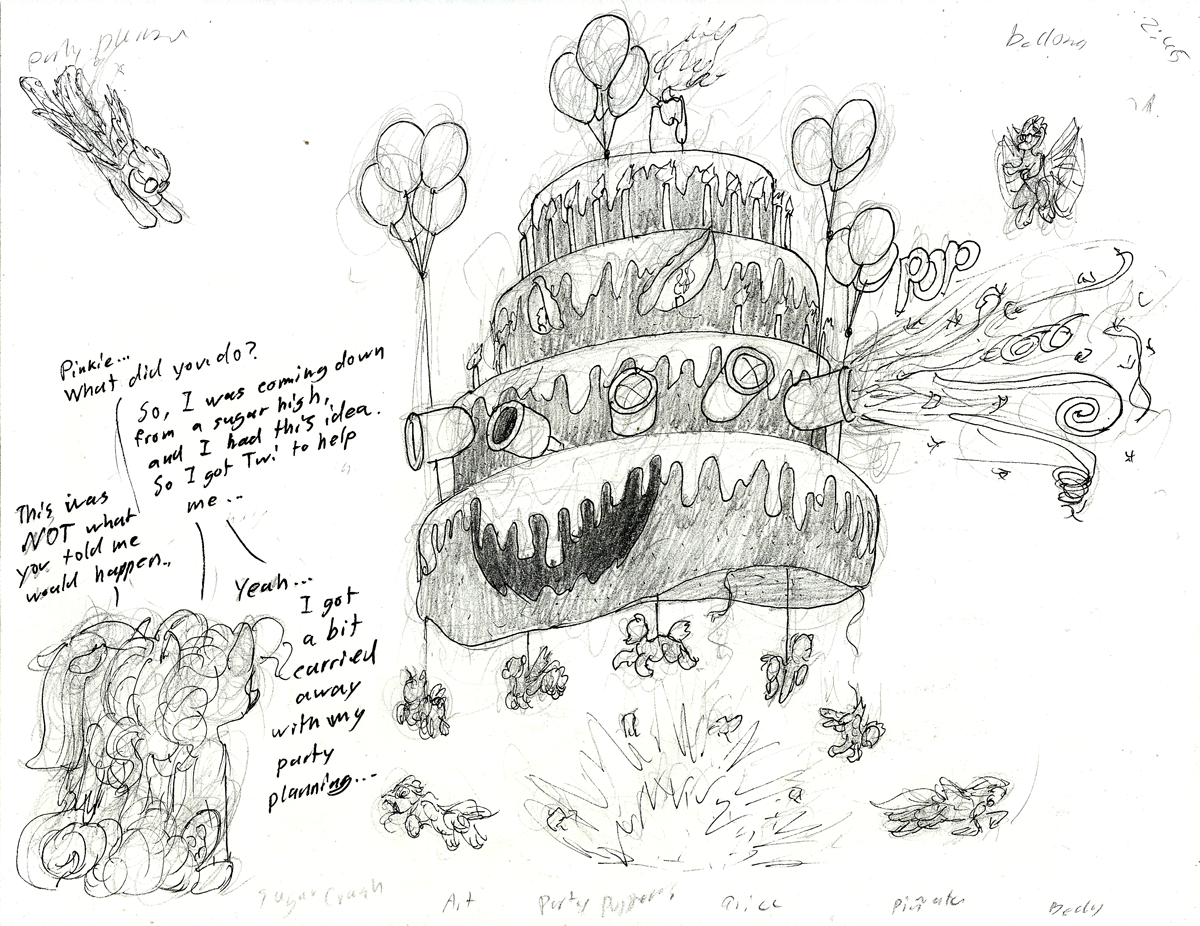 Pinkie...
What did you do?
So, I was coming down
from a sugar high,
and I had this idea.
So I got Twi to help
me...
This was
NOT what
you told me
would happen..
Yeah...
I got
a bit
carried
away
with my
party
planning...
POP
Sugar Crash
Art
Party Poppers